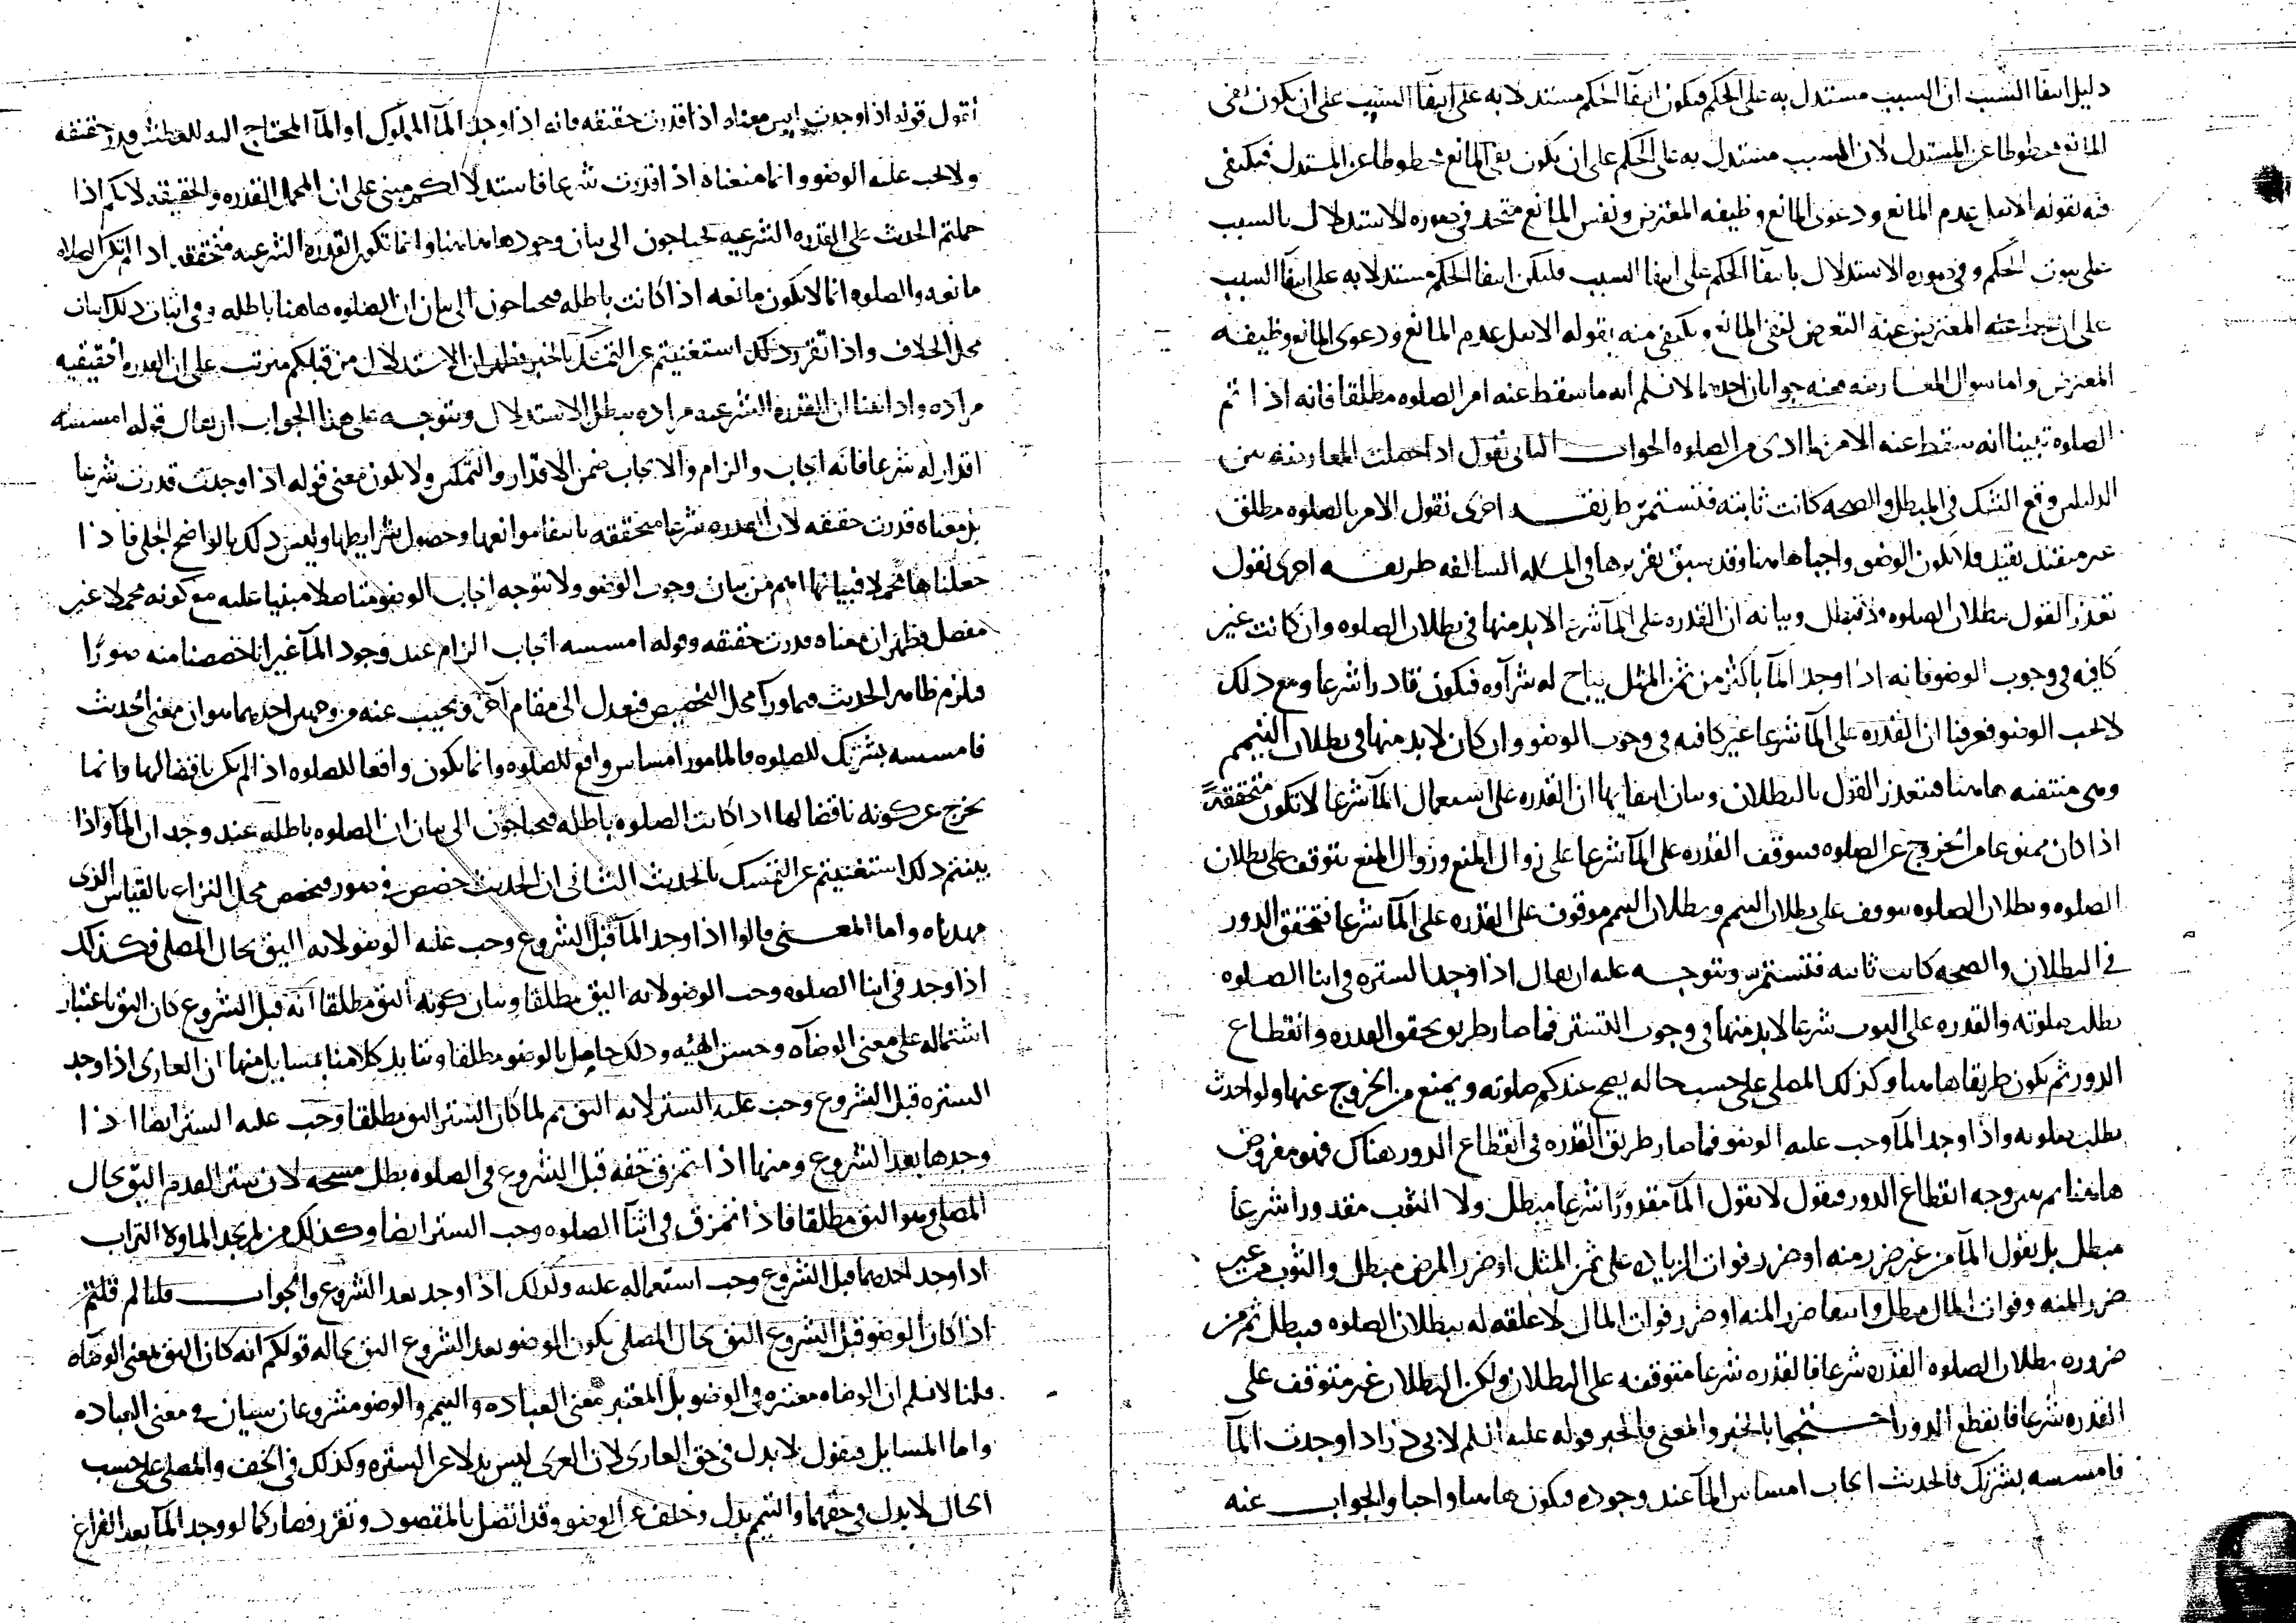 دليل انتفا السبب ان السبب مستدل به على الحكم فيكون انتفا الحكم مستدلا به على انتفا السبب على ان يكون نفى
المانع محطوطا عن المستدل لان السبب مستدل به على الحكم على ان يكون نفى المانع محطوطا عن المستدل فيكتفى
فيه بقوله الاصل عدم المانع ودعوى المانع وظيفه المعترض ونفس المانع متحد فى صوره الاستدلال بالسبب
على ثبوت الحكم وفى صوره الاستدلال بانتفا الحكم على انتفا السبب فليكن انتفا الحكم مستدلا به على انتفا السبب
على ان عنه التعرض لنفى المانع ويكتفى منه بقوله الاصل عدم المانع ودعوى المانع وظيفه
المعترض واما سوال المعارضه فعنه جوابان احدهما لا نسلم انه ما سقط عنه امر الصلوه مطلقا فانه اذا تم
الصلوة تبينا انه سقط عنه الامر بما ادى من الصلوه الجواب الثانى نقول اذا حصلت المعارضه بين
الدليلين وقع الشك فى المبطل والصحه كانت ثابته فتستمر طريقه اخرى نقول الامر بالصلوه مطلق
غير مقيد بقيد فلا يكون الوضو واجبا هاهنا وقد سبق تقريرها فى المسله السالفه طريقه اخرى نقول
تعذر القول ببطلان الصلوه فلا تبطل وبيانه ان القدره على المآ شرعا لا بد منها فى بطلان الصلوه وان كانت غير
كافيه فى وجوب الوضو فانه اذا وجد المآ باكثر من ثمن المثل يباح له شرآوه فيكون قادرا شرعا ومع ذلك
لا يجب الوضو فعرفنا ان القدره على المآ شرعا غير كافيه فى وجوب الوضو وان كان لا بد منها فى بطلان التيمم
وهى منتفيه هاهنا فتعذر القول بالبطلان وبيان انتفايها ان القدره على استعمال المآ شرعا لا تكون متحققة
اذا كان ممنوعا من الخروج عن الصلوه فتوقف القدره على المآ شرعا على زوال المنع وزوال المنع يتوقف على بطلان
الصلوه وبطلان الصلوه موقوف على بطلان التيمم وبطلان التيمم موقوف على القدره على المآ شرعا فتحقق الدور
فى البطلان والصحه كانت ثابته فتستمر ويتوجه عليه ان يقال اذا وجد الستره فى اثنا الصلوه
بطلت صلوته والقدره على الثوب شرعا لا بد منها فى وجوب التستر فما صار طريق تحقق القدره وانقطاع
الدور ثم يكون طريقا هاهنا وكذلك المصلى على حسب حاله يصح عندكم صلوته ويمنع من الخروج عنها ولو احدث
بطلت صلوته واذا وجد المآ وجب عليه الوضو فما صار طريق القدره فى انقطاع الدور هناك فهو مفروض
هاهنا ثم بين وجه انقطاع الدور فيقول لا نقول المآ مقدورا شرعا مبطل ولا الثوب مقدورا شرعا
مبطل بل نقول المآ من غير ضرر منه او ضرر فوات الزياده على ثمن المثل او ضرر المرض مبطل والثوب من غير
ضرر المنه وفوات المال مبطل وانتفا ضرر المنه او ضرر فوات المال لا علقه له ببطلان الصلوه فيبطل ثم من
ضروره بطلان الصلوه القدره شرعا فالقدره شرعا متوقفه على البطلان ولكن البطلان غير متوقف على
القدره شرعا فانقطع الدور احتجوا بالخبر والمعنى فالخبر قوله عليه السلم لابى ذر اذا وجدت المآ
فامسسه بشرتك فالحديث ايجاب امساس المآ عند وجوده فيكون هاهنا واجبا والجواب عنه
نقول قوله اذا وجدت ليس معناه اذا قدرت حقيقه فانه اذا وجد المآ المملوك او المآ المحتاج اليه للعطش قدر حقيقه
ولا يجب عليه الوضو وانما معناه اذا قدرت شرعا فاستدلالكم مبنى على ان المحمل القدره والحقيقه لانكم اذا
حملتم الحديث على القدره الشرعيه تحتاجون الى بيان وجودها هاهنا وانما تكون القدره الشرعيه متحققه اذا لم تكن الصلاه
مانعه والصلوه انما لا تكون مانعه اذا كانت باطله فتحتاجون الى بيان ان الصلوه هاهنا باطله وفى اثبات ذلك اثبات
محل الخلاف واذا تقرر ذلك استغنيتم عن التمسك بالخبر فظهر ان الاستدلال من قبلكم مترتب على ان القدره الحقيقيه
مراده واذا بينا ان القدره الشرعيه مراده بطل الاستدلال ويتوجه على هذا الجواب ان يقال قوله امسسه
اقدار له شرعا فانه ايجاب والزام والايجاب ضمن الاقدار والتمكين ولا يكون معنى قوله اذا وجدت قدرت شرعا
بل معناه قدرت حقيقه لان القدره شرعا متحققه بانتفا موانعها وحصول شرايطها وليس ذلك بالواضح الجلى فاذا
جعلناها محملا فبيانها اهم من بيان وجوب الوضو ولا يتوجه ايجاب الوضو متاصلا مبنيا عليه مع كونه مجملا غير
مفصل فظهر ان معناه قدرت حقيقه وقوله امسسه ايجاب الزام عند وجود المآ غير انا خصصنا منه صورا
فلزم ظاهر الحديث فيما ورآ محل التخصيص فيعدل الى مقام آخر ونجيب عنه من وجهين احدهما هو ان معنى الحديث
فامسسه بشرتك للصلوه فالمامور امساس واقع للصلوه وانما يكون واقعا للصلوه اذا لم يكن ناقضا لها وانما
يخرج عن كونه ناقضا لها اذا كانت الصلوه باطله فتحتاجون الى بيان ان الصلوه باطله عند وجدان المآ واذا
بينتم ذلك استغنيتم عن التمسك بالحديث الثانى ان الحديث خصص فى صور فيخصص محل النزاع بالقياس الذى
مهدناه واما المعنى قالوا اذا وجد المآ قبل الشروع وجب عليه الوضو لانه اليق بحال المصلى فكذلك
اذا وجد فى اثنا الصلوه وجب الوضو لانه اليق مطلقا وبيان كونه اليق مطلقا انه قبل الشروع كان اليق باعتبار
اشتماله على معنى الوضآه وحسن الهيئه وذلك حاصل بالوضو مطلقا وتايد كلامنا بمسايل منها ان العارى اذا وجد
الستره قبل الشروع وجب عليه الستر لانه اليق ثم لما كان الستر اليق مطلقا وجب عليه الستر ايضا اذا
وجدها بعد الشروع ومنها اذا تمزق خفه قبل الشروع فى الصلوه بطل مسحه لان ستر القدم اليق بحال
المصلى وهو اليق مطلقا فاذا تمزق فى اثنآ الصلوه وجب الستر ايضا وكذلك من لم يجد المآ ولا التراب
اذا وجد احدهما قبل الشروع وجب استعماله عليه وكذلك اذا وجد بعد الشروع والجواب قلنا لم قلتم
اذا كان الوضو قبل الشروع اليق بحال المصلى يكون الوضو بعد الشروع اليق بحاله قولكم انه كان اليق بمعنى الوضآه
قلنا لا نسلم ان الوضاه معتبره فى الوضو بل المعتبر معنى العباده والتيمم والوضو مشروعان سيان فى معنى العباده
واما المسايل فيقول لا بدل فى حق العارى لان العرى ليس بدلا عن الستره وكذلك فى الخف والمصلى على حسب
الحال لا بدل فى حقهما والتيمم بدل وخلف عن الوضو وقد اتصل بالمقصود وتقرر فصار كما لو وجد المآ بعد الفراغ